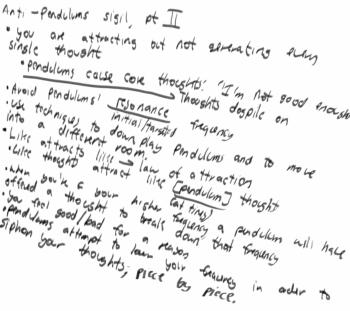 Anti-Pendulums sigil, pt II
• you are attracting but not generating every
single thought
• pendulums cause core thoughts: "I'm not good enough
Thoughts dogpile on
• Avoid pendulums' Resonance frequency
initial/target
• use techniques to down play pendulums and to move
into a different room
• Like attracts like → law of attraction
• Like thought attract like [pendulum] thought
• When you're @ your higher frequency a pendulum will have
offered a thought to break down that frequency
• you feel good/bad for a reason
• pendulums attempt to lower your frequency in order to
siphon your thoughts; piece by piece.